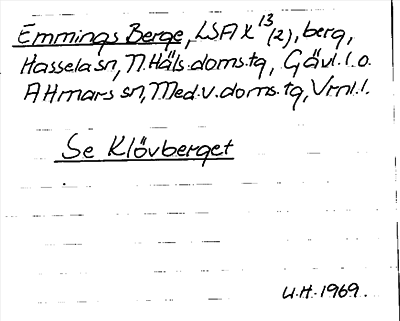 Emmings Berge, LSA X 13 (2), berg,
Hassela sn, N. Häls. doms. tg, Gävl. l. o.
Attmars sn, Med. v. doms. tg, Vrnl. l.
Se Klövberget
U.H. 1969.